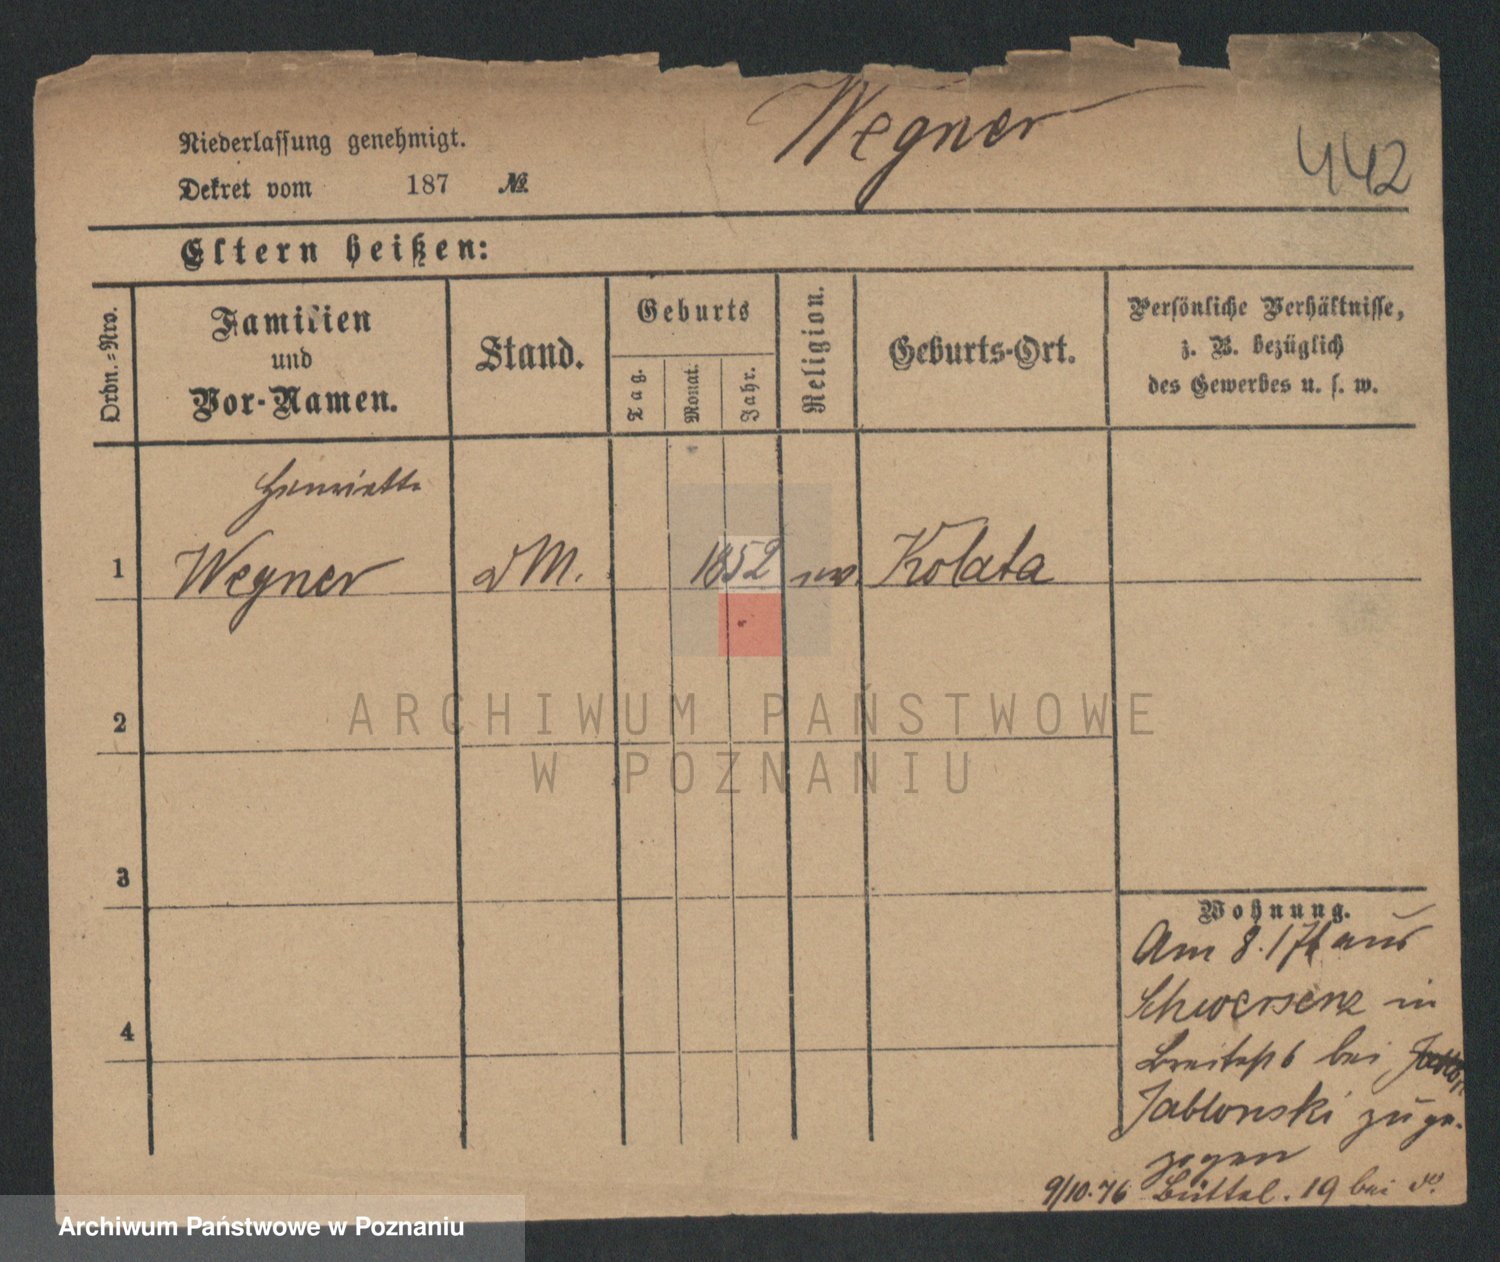 Wegner
442
Niederlassung genehmigt.
Dekret vom 187 №
Eltern heißen:
Ordn.-Nro.
Familien
und
Vor-Namen.
Stand.
Geburts
Tag.
Monat.
Jahr.
Religion.
Geburts-Ort.
Persönliche Verhältnisse,
z. B. bezüglich
des Gewerbes u. s. w.
Henriette
1 Wegner dM. 1852 ev. Kolata
2
ARCHIWUM PAŃSTWOWE
W POZNANIU
3
4
Wohnung.
Am 8. 1 aus
Schwersenz in
Breitestr 6 bei
Jablonski zuge-
zogen
9/10.76 Büttel. 19 bei
Archiwum Państwowe w Poznaniu